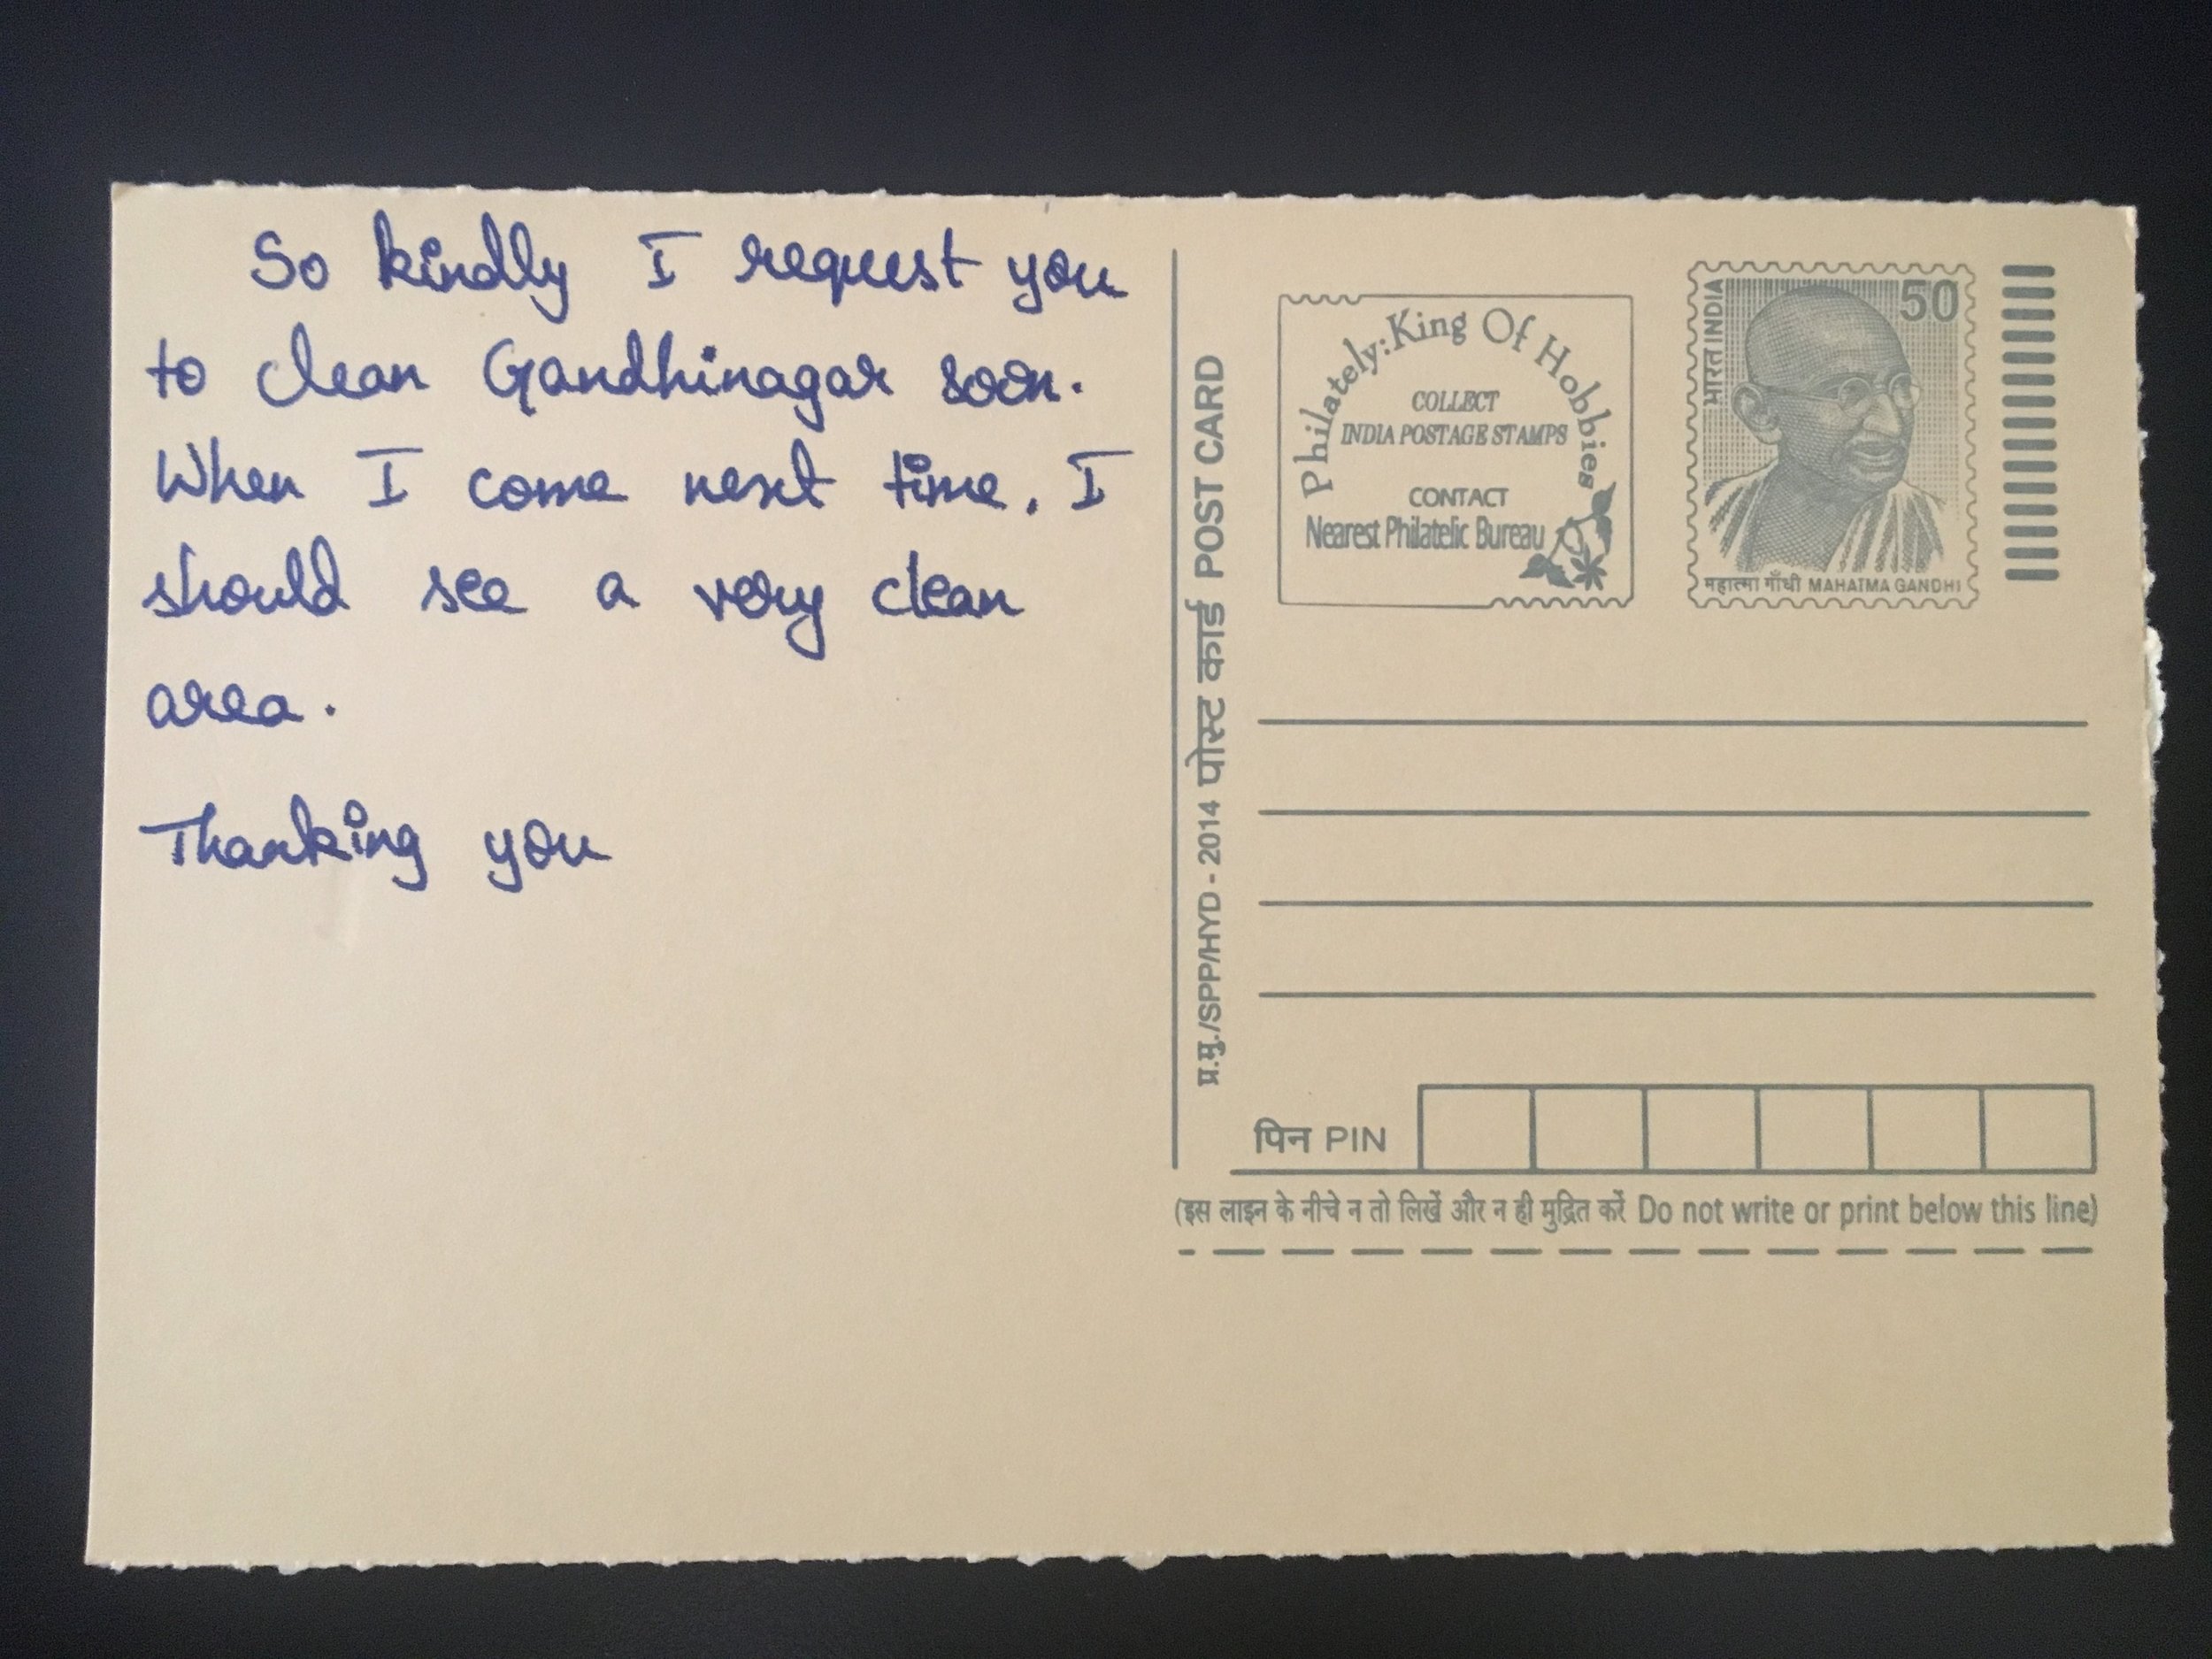 So kindly I request you
to clean Gandhinagar soon.
When I come next time. I
should see a very clean
area.
Thanking you
प्र.मु./SPP/HYD - 2014 पोस्ट कार्ड POST CARD
Philately:King Of Hobbies
COLLECT
INDIA POSTAGE STAMPS
CONTACT
Nearest Philatelic Bureau
भारत INDIA
50
महात्मा गाँधी MAHATMA GANDHI
पिन PIN
(इस लाइन के नीचे न तो लिखें और न ही मुद्रित करें Do not write or print below this line)